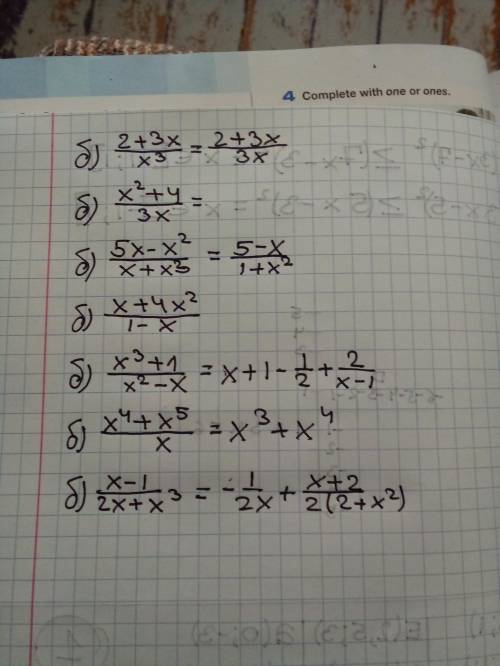 4 Complete with one or ones.
б) (2+3x)/x³ = (2+3x)/3x
б) (x²+4)/3x =
б) (5x-x²)/(x+x³) = (5-x)/(1+x²)
б) (x+4x²)/(1-x)
б) (x³+1)/(x²-x) = x+1-1/2+2/(x-1)
б) (x⁴+x⁵)/x = x³+x⁴
б) (x-1)/(2x+x³) = -1/2x+(x+2)/2(2+x²)